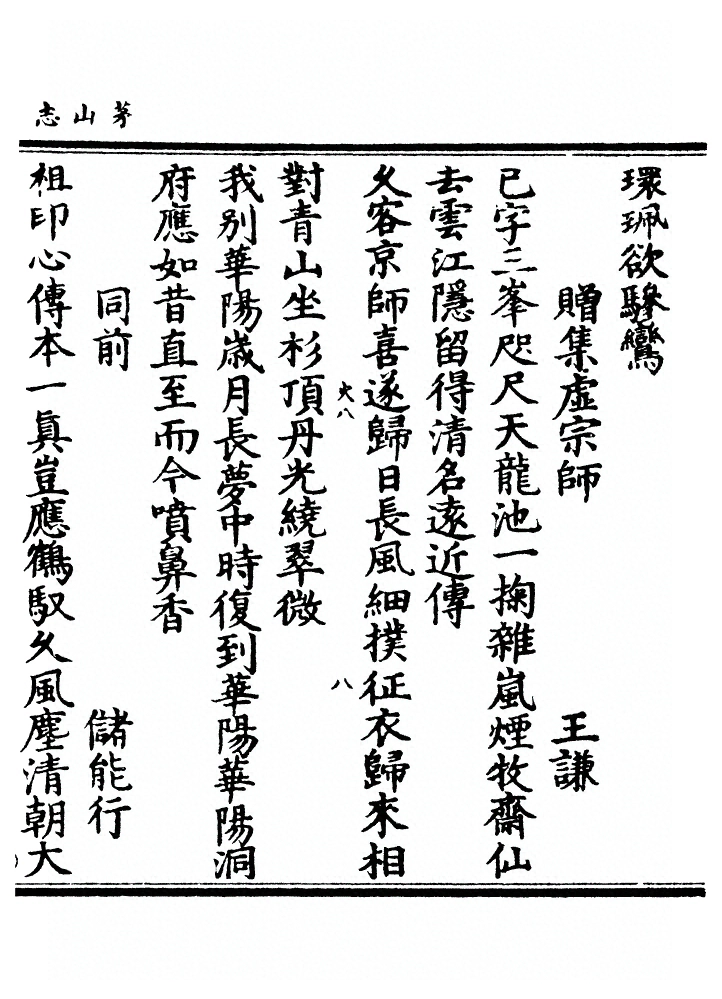 茅山志
環珮欲驂鸞
贈集虛宗師　王謙
已字三峯咫尺天龍池一掬雜嵐煙牧齋仙
去雲江隱留得清名遠近傳
久客京師喜遂歸日長風細撲征衣歸來相
大八
八
對青山坐杉頂丹光繞翠微
我別華陽歲月長夢中時復到華陽華陽洞
府應如昔直至而今噴鼻香
同前　儲能行
祖印心傳本一眞豈應鶴馭久風塵清朝大